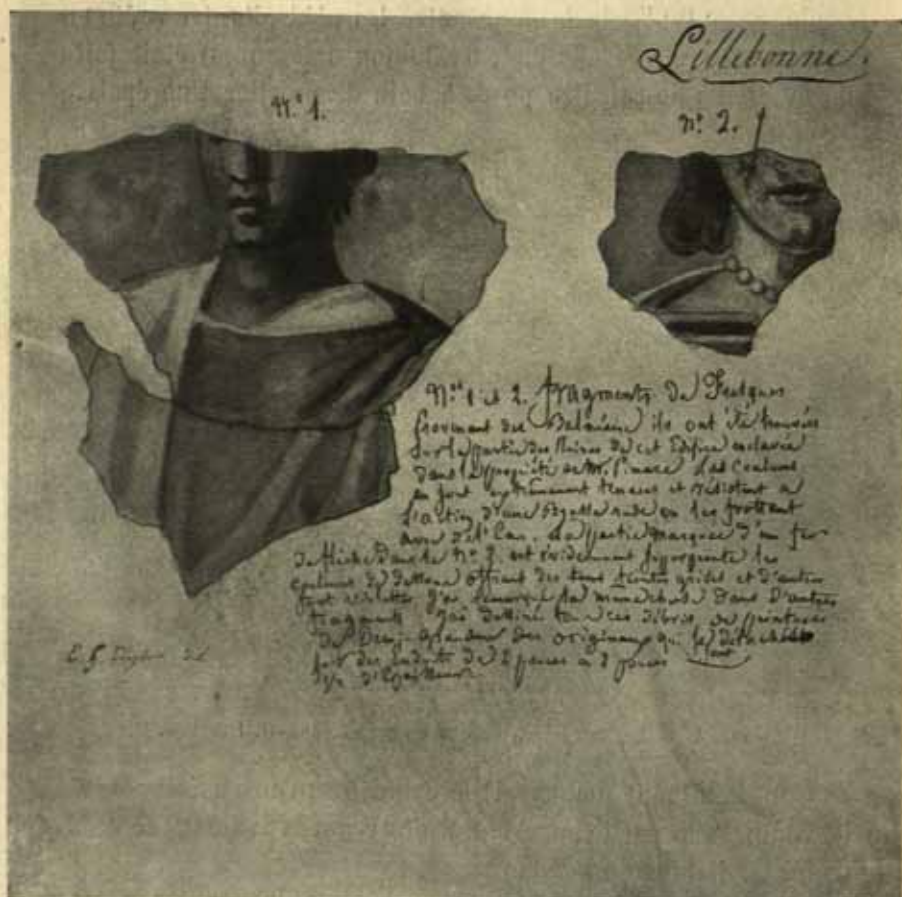 Lillebonne.
N.º 1.
n.º 2.
N.os 1 et 2. fragments de Fresques
provenant des Balnéaire ils ont été trouvés
sur la partie des Ruines de cet Edifice enclavée
dans la propriété de Mr. Les Couleurs
en sont extrêmement tenaces et résistent a
L'action d'une rude en les frottant
avec de l'Eau. La partie marquée d'un fer
de flèche dans le N.º 2. est évidemment les
couleurs de dessous offrant des tons gris et d'autres
J'ai remarqué la même chose dans d'autres
fragments J'ai dessiné tous ces débris de peintures
de Demi-grandeur des originaux qui se détachent
sur des Enduits de 2 pouces a 3 pouces
d'Epaisseur
E. H. del